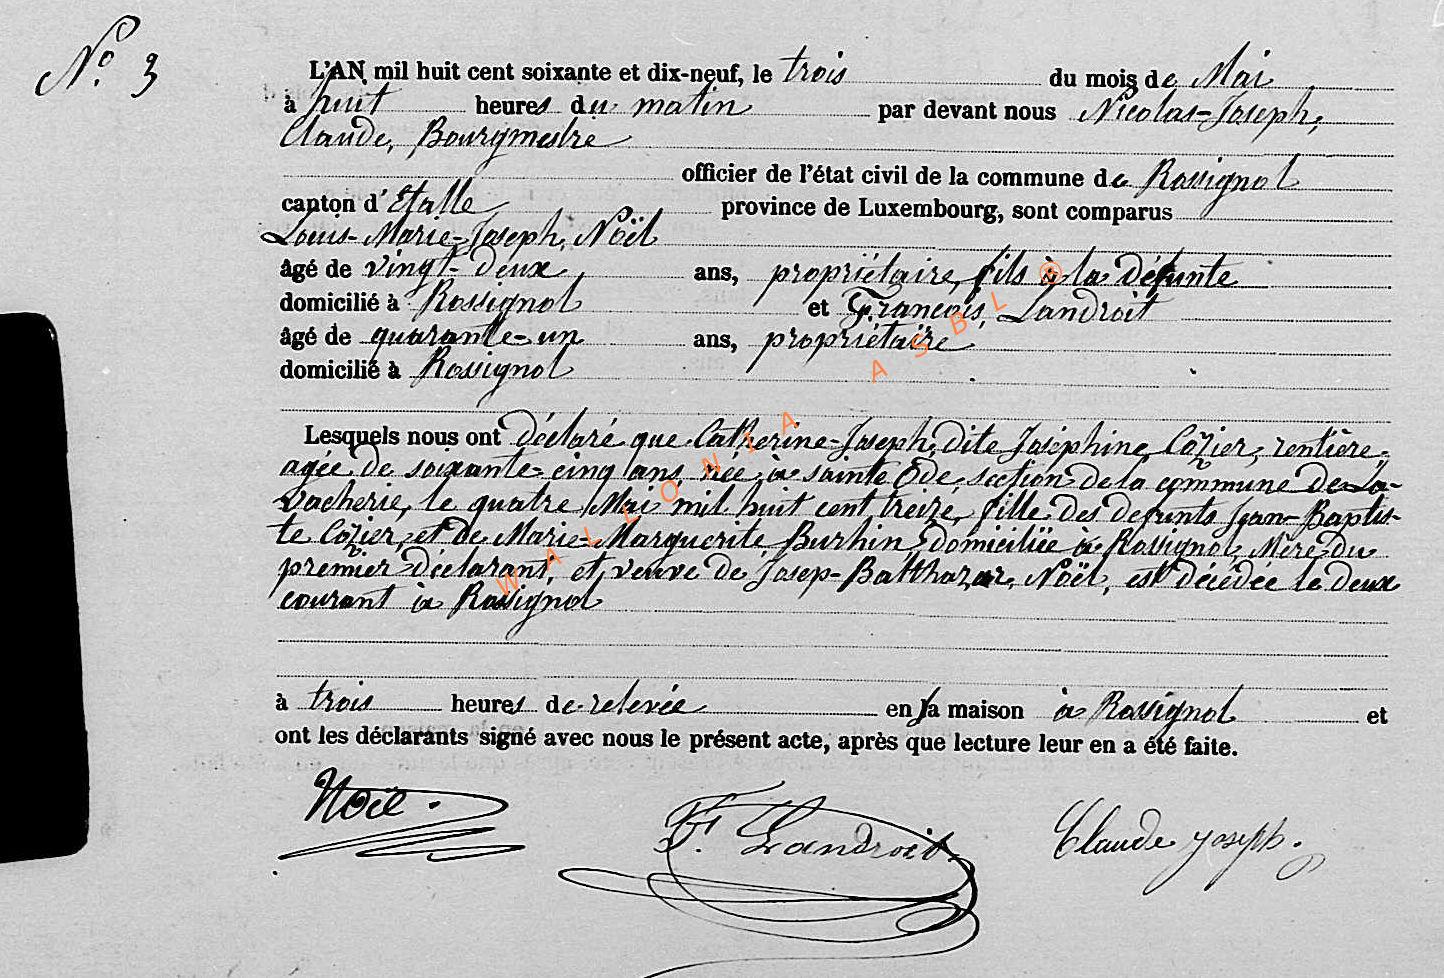 N° 3
L'AN mil huit cent soixante et dix-neuf, le trois du mois de Mai
à huit heures du matin par devant nous Nicolas-Joseph,
Claude, Bourgmestre
officier de l'état civil de la commune de Rossignol
canton d'Etalle province de Luxembourg, sont comparus
Louis-Marie-Joseph, Noël
âgé de vingt-deux ans, propriétaire, fils à la défunte
domicilié à Rossignol et François, Landroit
âgé de quarante-un ans, propriétaire
domicilié à Rossignol
Lesquels nous ont déclaré que Catherine-Joseph, dite Joséphine Cozier, rentière
agée de soixante-cinq ans, née à sainte Ode section de la commune de La-
vacherie, le quatre Mai mil huit cent treize, fille des defunts Jean-Baptis-
te Cozier, et de Marie-Marguerite Burhin, domiciliée à Rossignol, Mère du
premier déclarant, et veuve de Josep-Balthazar, Noël, est décédée le deux
courant à Rossignol
à trois heures de relevée en sa maison à Rossignol et
ont les déclarants signé avec nous le présent acte, après que lecture leur en a été faite.
Noël.
F. Landroit.
Claude Joseph.
WALLONIA ASBL ©